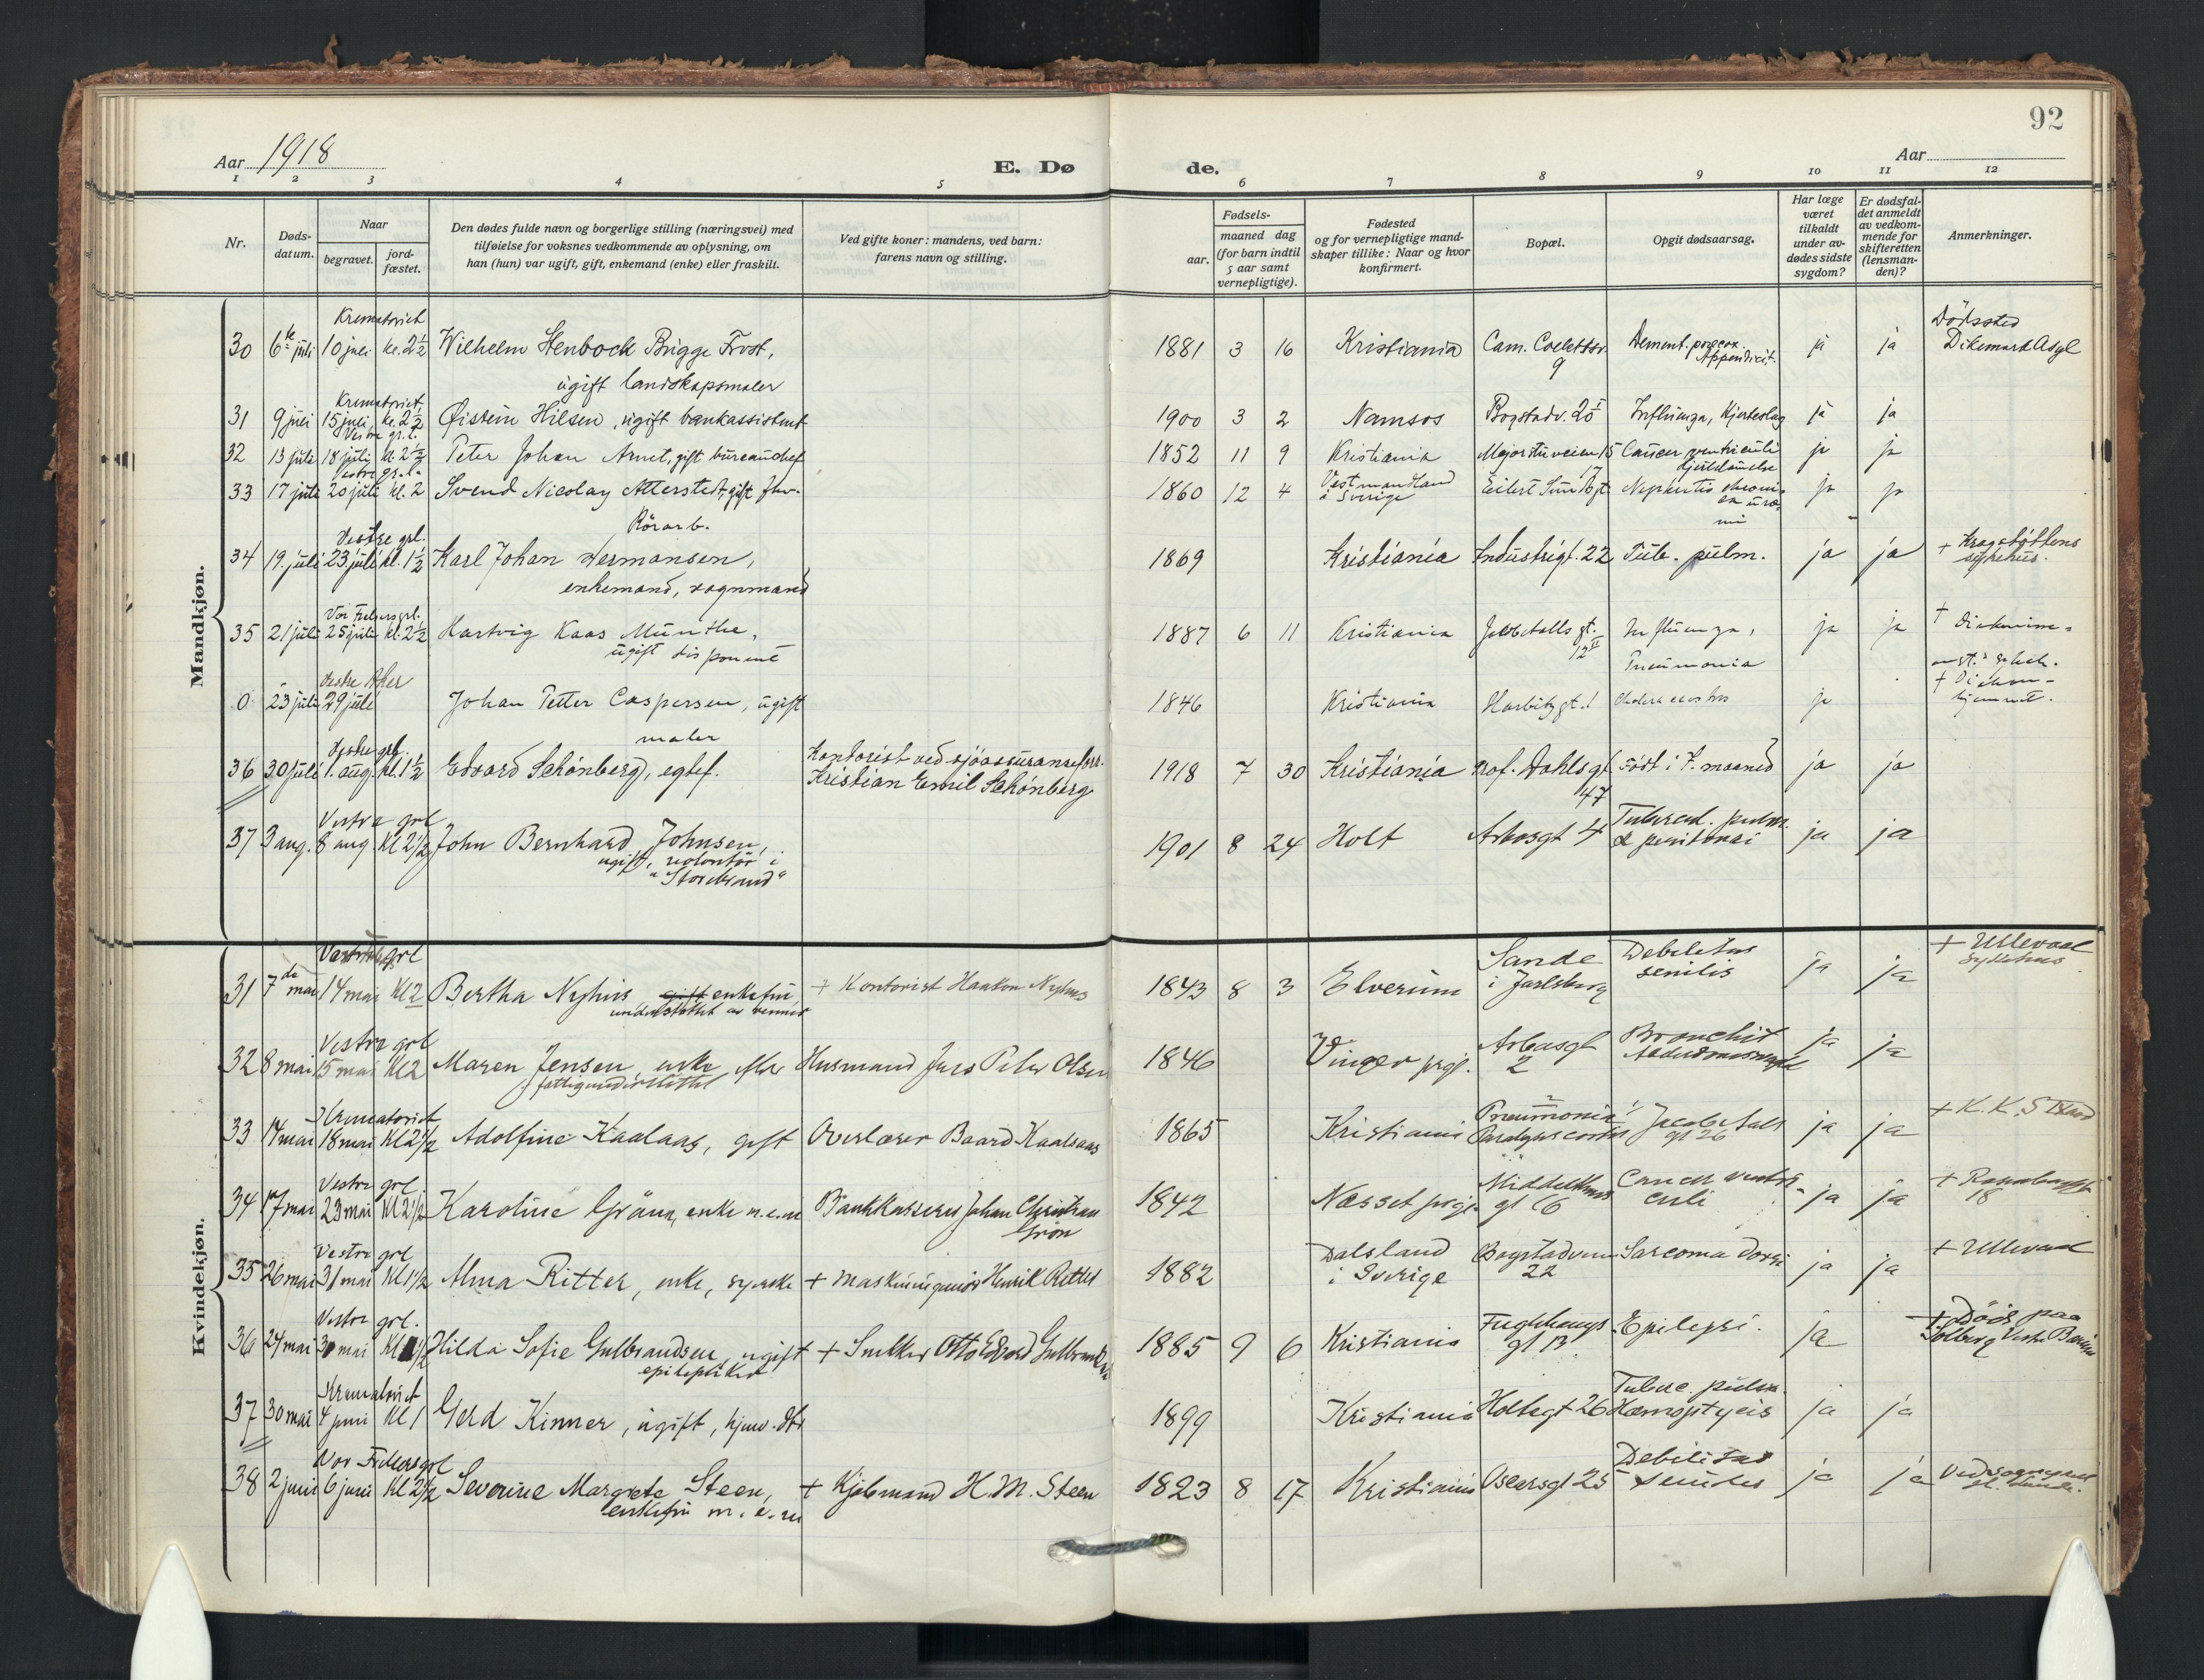 92
Aar 1918
E. Dø
de.
Aar
1 2 3 4 5 6 7 8 9 10 11 12
Nr.
Døds-
datum.
Naar
begravet.
jord-
fæstet.
Den dødes fulde navn og borgerlige stilling (næringsvei) med
tilføielse for voksnes vedkommende av oplysning, om
han (hun) var ugift, gift, enkemand (enke) eller fraskilt.
Ved gifte koner: mandens, ved barn:
farens navn og stilling.
Fødsels-
aar.
maaned dag
(for barn indtil
5 aar samt
vernepligtige).
Fødested
og for vernepligtige mand-
skaper tillike: Naar og hvor
konfirmert.
Bopæl.
Opgit dødsaarsag.
Har læge
været
tilkaldt
under av-
dødes sidste
sygdom?
Er dødsfal-
det anmeldt
av vedkom-
mende for
skifteretten
(lensman-
den)?
Anmerkninger.
Mandkjøn.
Krematoriet
30 6te juli 10 juli kl. 2½ Wilhelm Stenbock Brigge Frost, 1881 3 16 Kristiania Cam. Collettsv. 9 Dement. præcox. Appendicit. ja ja Dödssted Dikemark Asyl
ugift landskapsmaler
Krematoriet
31 9 juli 15 juli kl. 2½ Øistein Hilsen, ugift bankassistent 1900 3 2 Namsos Bogstadv. 25 Influenza, Hjerteslag ja ja
Vestre gr.l.
32 13 juli 18 juli kl. 2½ Peter Johan Arnet, gift bureauchef 1852 11 9 Kristiania Majorstuveien 15 Cancer ventriculi ja ja
Vestre gr.l.
33 17 juli 20 juli kl. 2 Svend Nicolay Atterstedt, gift 1860 12 4 Vestmandland i Sverige Eilert Sundtsgt 17 Nephritis ja ja
Rörarb.
Vestre grl.
34 19. juli 23. juli kl. 1½ Karl Johan Hermansen, 1869 Kristiania Industrigt. 22 Tub. pulm. ja ja + Krogstøttens sykehus.
enkemand, vognmand
Vor Frelsers grl.
35 21 juli 25 juli kl. 2½ Hartvig Kaas Munthe, 1887 6 11 Kristiania Jacob Aalls gt. 12 II Influenza, Pneumonia ja ja
ugift disponent
Vestre Aker
0 23 juli 29 juli Johan Petter Caspersen, ugift 1846 Kristiania Harbitzgt. 1 ja + Diakon-hjemmet.
maler
Vestre grl.
36 30 juli 1. aug. kl. 1½ Edvard Schönberg, egtef. Kontorist ved sjöassuranseforr. Kristian Emil Schönberg 1918 7 30 Kristiania Prof. Dahlsgt 47 Født i 7. maaned ja ja
Vestre grl
37 3 aug. 8 aug. kl 2½ John Bernhard Johnsen, 1901 8 24 Holt Arbosgt 4 Tubercul. pulm. & peritonai ja ja
ugift, volontör i
"Storebrand"
Kvindekjøn.
Vestre grl
31 7de mai 14 mai Kl 2 Bertha Nyhus gift enkefru, + Kontorist Haakon Nyhus 1843 8 3 Elverum Sande i Jarlsberg Debilitas senilis ja ja + Ullevaal sykehus
understöttet av venner
Vestre grl
32 8 mai 15 mai Kl 2 Maren Jensen, enke efter Husmand Jens Peter Olsen 1846 Vinger prgj. Arbosgt 2 Bronchit ja ja
fattigunderstöttet
Krematoriet
33 14 mai 18 mai Kl 2½ Adolfine Kaalaas, gift Overlærer Baard Kaalaas 1865 Kristiania Pneumonia Paralysis cordis Jacob Aals gt 26 ja ja
Vestre grl.
34 17 mai 23 mai Kl 2½ Karoline Grönn, enke m.e.m Bankkasserer Johan Christian Grön 1842 Næsset prgj. Middelthuns gt 16 Cancer ventri-culi ja ja
Vestre grl
35 26 mai 31 mai Kl 1½ Alma Ritter, enke, syerske + Maskiningeniör Henrik Ritter 1882 Dalsland i Sverige Bogstadveien 22 Sarcoma dorsi ja ja + Ullevaal
Vestre grl.
36 24 mai 30 mai Kl 1½ Hilda Sofie Gulbrandsen, ugift + Snekker Otto Edvard Gulbrandsen 1885 9 6 Kristiania Fuglehaugs gt 13 Epilepsi. ja + Död paa Solberg Vestre Bærum
epileptiker
Krematoriet
37 30 mai 4 juni Kl 1 Gerd Kinner, ugift, hjemv. dtr 1899 Kristiania Holtegt 26 Tuberc. pulm. Hæmoptysis ja ja
Vor Frelsers grl
38 2 juni 6 juni Kl 2½ Severine Margrete Steen, + Kjöbmand H. M. Steen 1823 8 17 Kristiania Oscarsgt 25 Debilitas senilis ja ja Ved sogneprest
enkefru m.e.m